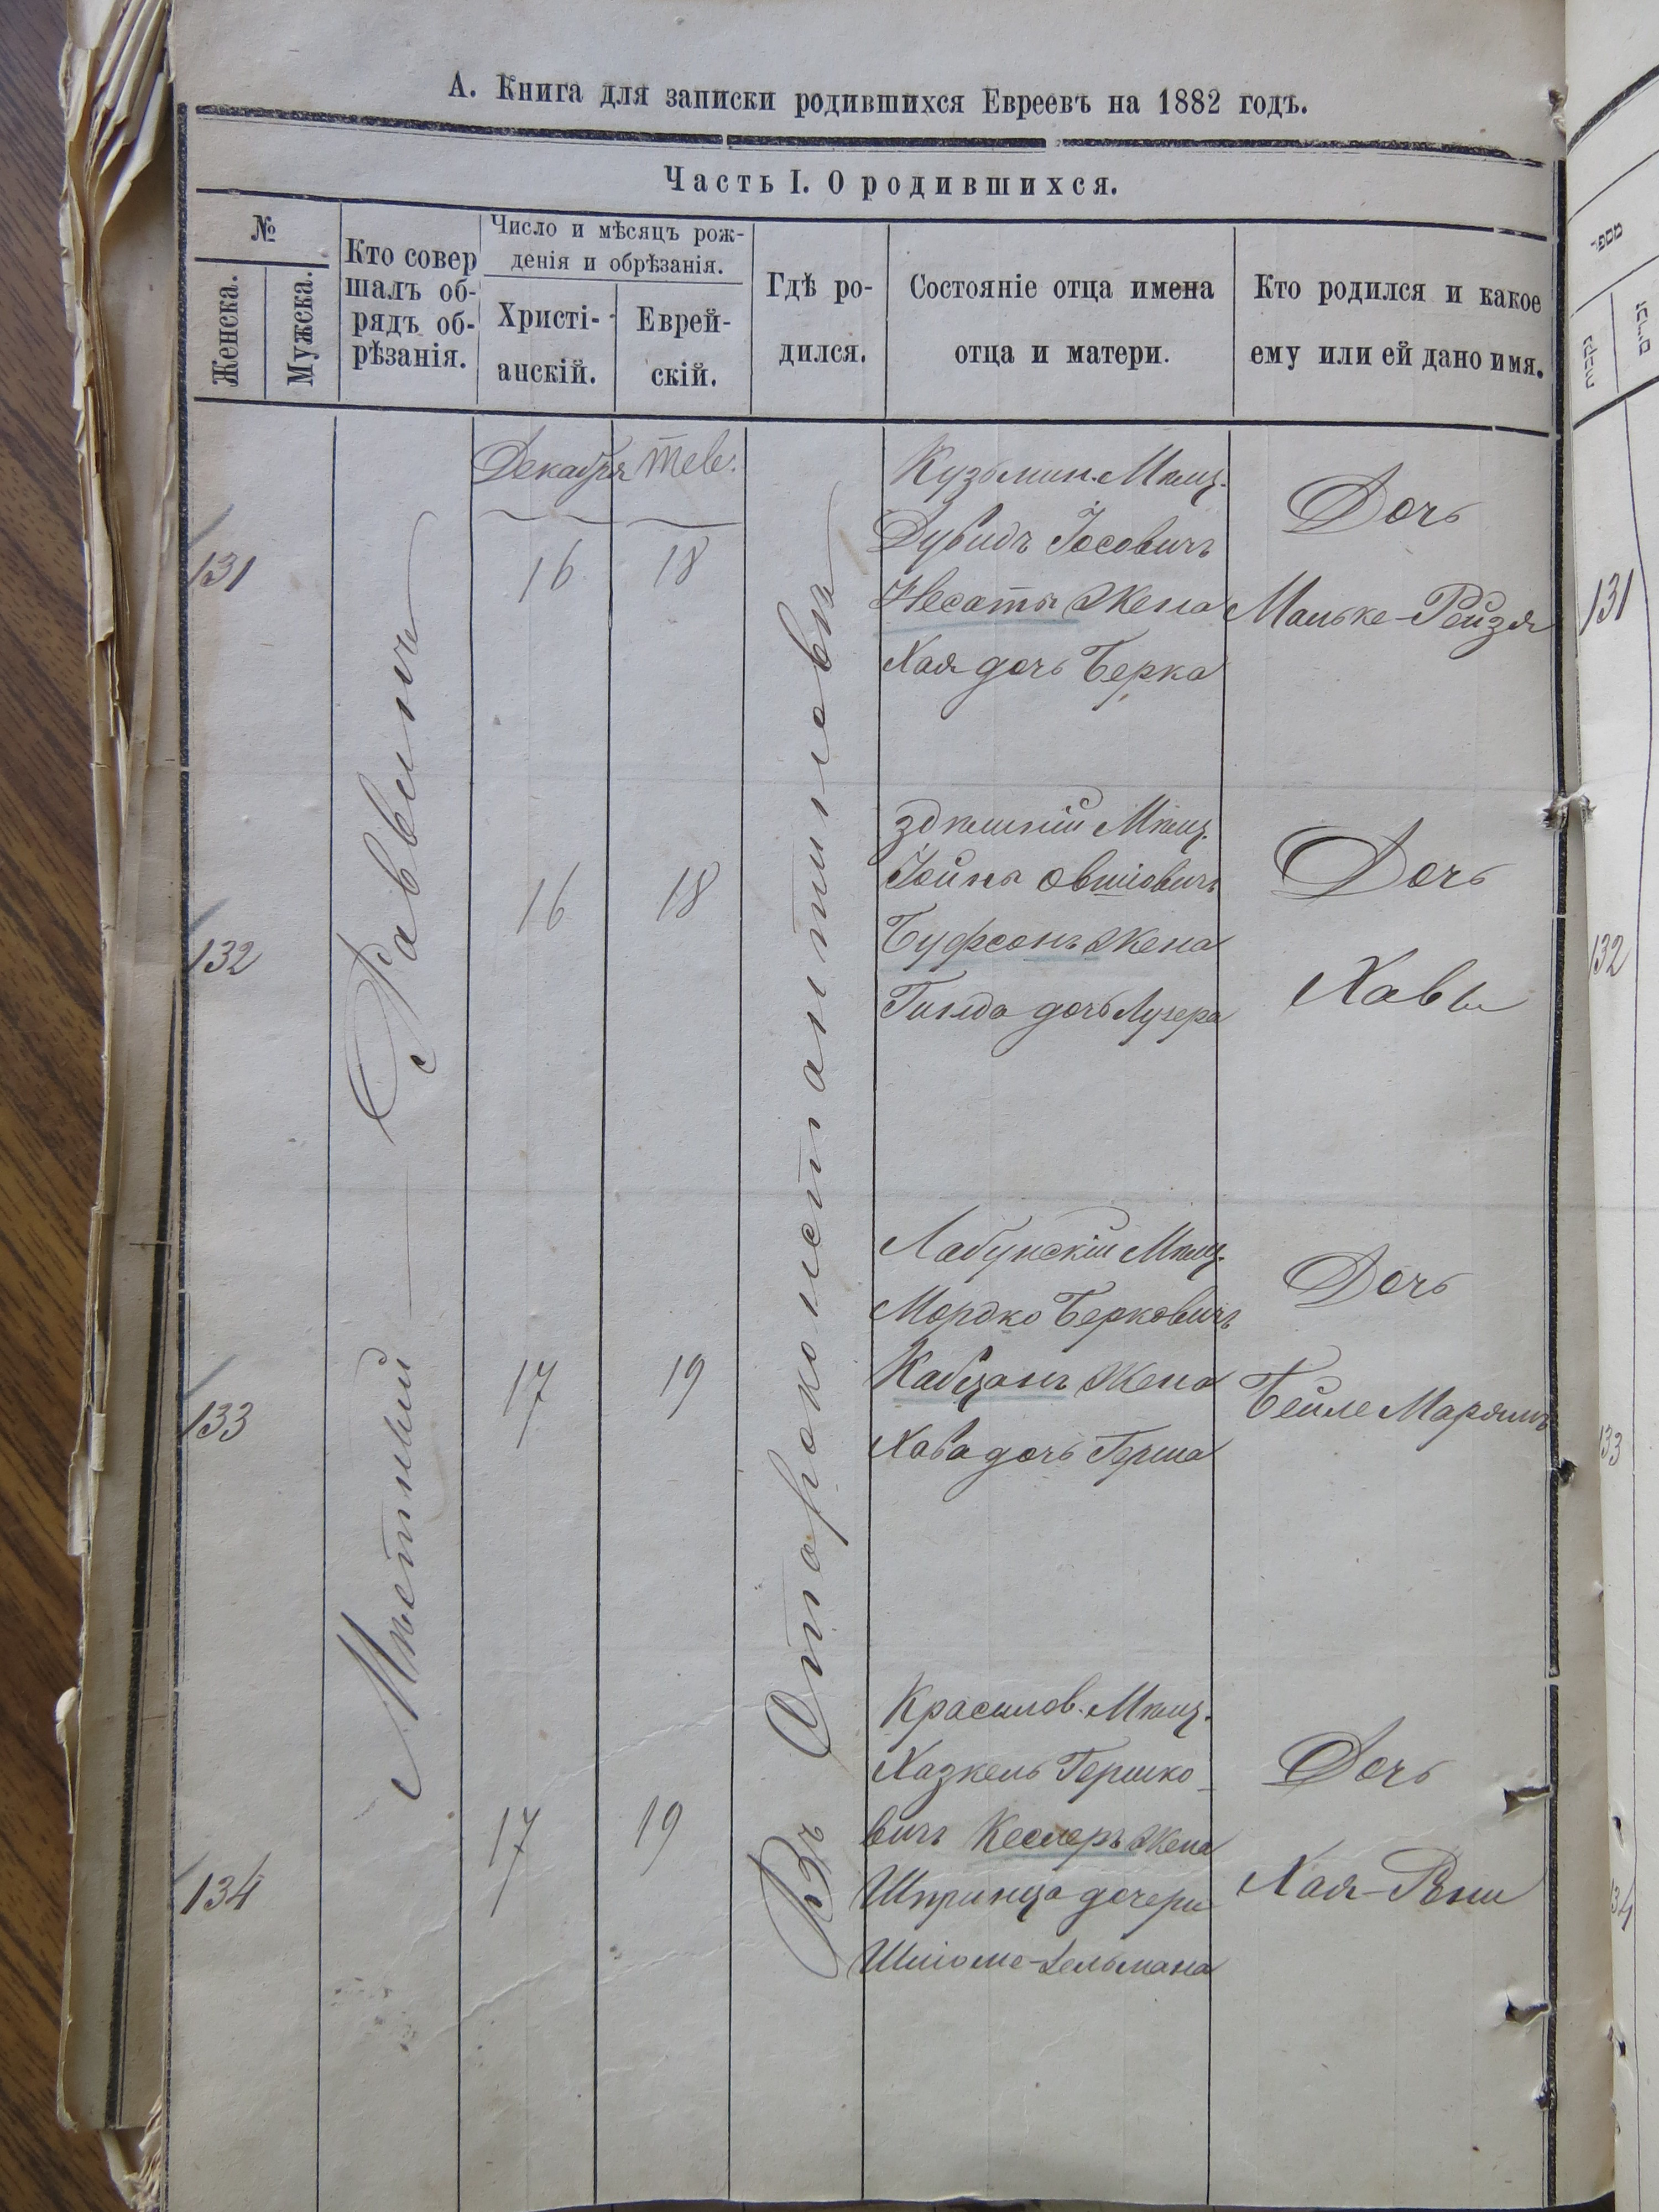 А. Книга для записки родившихся Евреевъ на 1882 годъ.
Часть I. О родившихся.
№
Женска.
Мужска.
Кто совер
шалъ об-
рядъ об-
рѣзанія.
Число и мѣсяцъ рож-
денія и обрѣзанія.
Христі-
анскій.
Еврей-
скій.
Гдѣ ро-
дился.
Состояніе отца имена
отца и матери.
Кто родился и какое
ему или ей дано имя.
Мѣстный Раввинъ
Въ Староконстантиновѣ
Декабря
Тев.
131
16
18
Кузьмин. Мѣщ.
Дувидъ Іосовичъ
Несаты Жена
Хая дочь Берка
Дочь
Мальке-Рейзя
131
132
16
18
Здѣшній Мѣщ.
Іойна Овшіовичъ
Буфсонъ Жена
Гилда дочь Лузера
Дочь
Хавы
132
133
17
19
Лабунскій Мѣщ.
Мордко Берковичъ
Кабцанъ Жена
Хава дочь Герша
Дочь
Бейле Марямъ
133
134
17
19
Красилов. Мѣщ.
Хазкель Гершко-
вичъ Кеслеръ Жена
Шпринца дочери
Шліоме-Зельмана
Дочь
Хая-
134